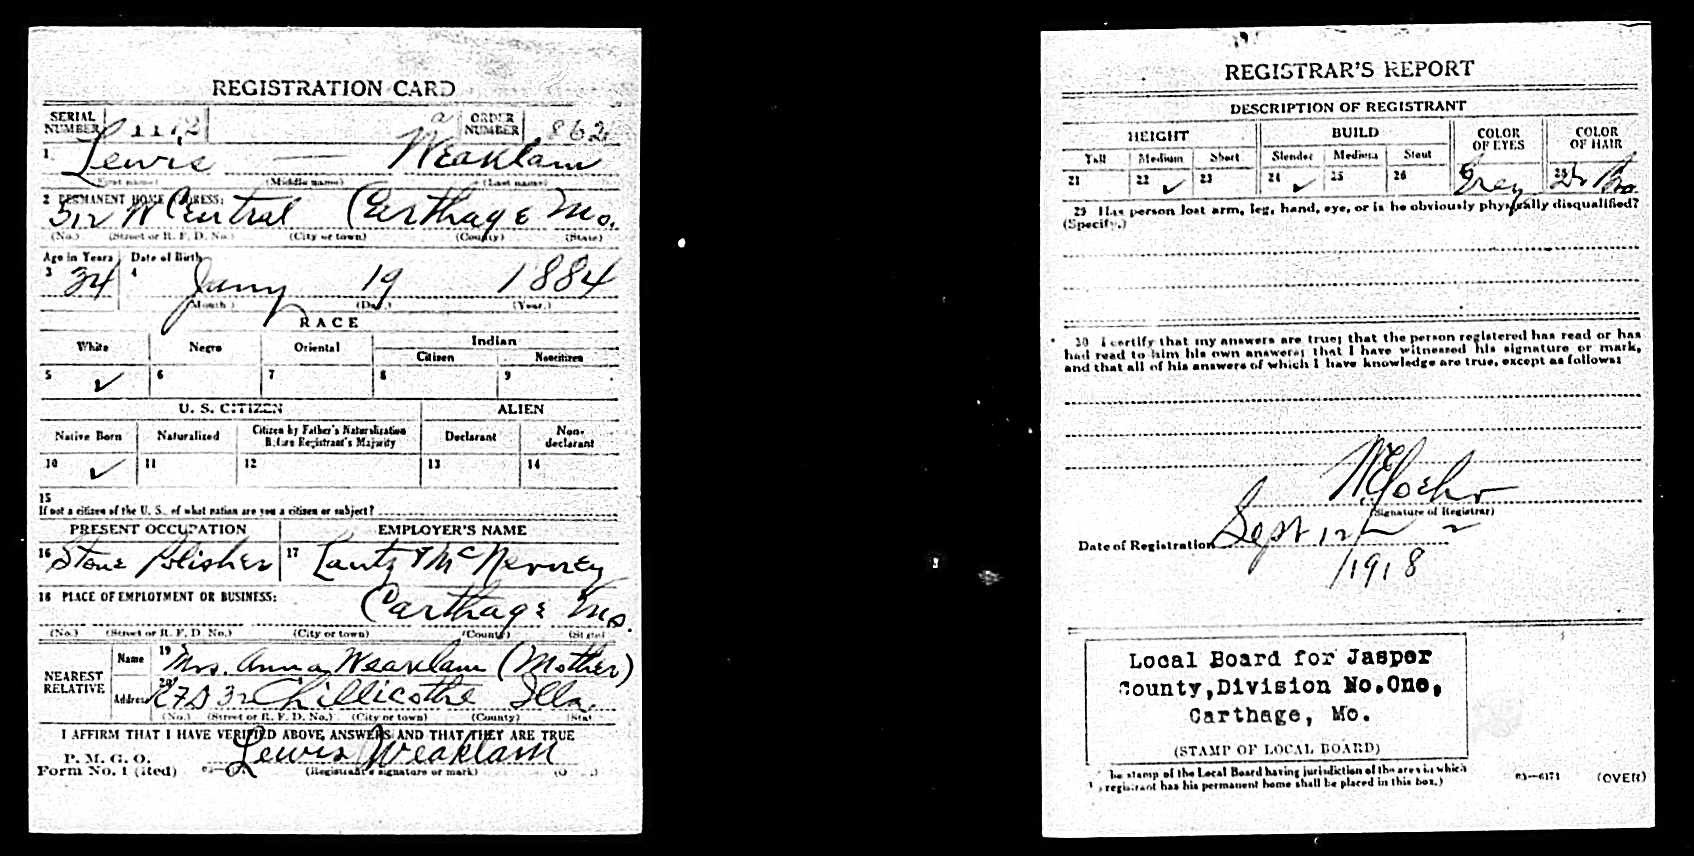 REGISTRATION CARD
SERIAL NUMBER 1172 a ORDER NUMBER 862
1 Lewis — Weaklam
(First name) (Middle name) (Last name)
2 PERMANENT HOME ADDRESS:
512 W Central Carthage Mo.
(No.) (Street or R. F. D. No.) (City or town) (County) (State)
Age in Years Date of Birth
3 34 4 Jany 19 1884
(Month.) (Day.) (Year.)
RACE
White Negro Oriental Indian
Citizen Noncitizen
5 ✓ 6 7 8 9
U. S. CITIZEN ALIEN
Native Born Naturalized Citizen by Father's Naturalization Before Registrant's Majority Declarant Non-declarant
10 ✓ 11 12 13 14
15
If not a citizen of the U. S., of what nation are you a citizen or subject?
PRESENT OCCUPATION EMPLOYER'S NAME
16 Stone Polisher 17 Lautz & McNerney
18 PLACE OF EMPLOYMENT OR BUSINESS:
Carthage Mo.
(No.) (Street or R. F. D. No.) (City or town) (County) (State)
NEAREST RELATIVE
Name 19 Mrs. Anna Weaklam (Mother)
Address 20 RFD 32 Chillicothe Ills.
(No.) (Street or R. F. D. No.) (City or town) (County) (Stat
I AFFIRM THAT I HAVE VERIFIED ABOVE ANSWERS AND THAT THEY ARE TRUE
P. M. G. O.
Form No. 1 (Red) Lewis Weaklam
(Registrant's signature or mark)
REGISTRAR'S REPORT
DESCRIPTION OF REGISTRANT
HEIGHT BUILD COLOR OF EYES COLOR OF HAIR
Tall Medium Short Slender Medium Stout
21 22 ✓ 23 24 ✓ 25 26 Grey Dr Bro.
29 Has person lost arm, leg, hand, eye, or is he obviously physically disqualified?
(Specify.)
30 I certify that my answers are true; that the person registered has read or has
had read to him his own answers; that I have witnessed his signature or mark,
and that all of his answers of which I have knowledge are true, except as follows:
(Signature of Registrar)
Date of Registration Sept 12
1918
Local Board for Jasper
County, Division No. One,
Carthage, Mo.
(STAMP OF LOCAL BOARD)
he stamp of the Local Board having jurisdiction of the area in which
registrant has his permanent home shall be placed in this box.)
03—6171 (OVER)